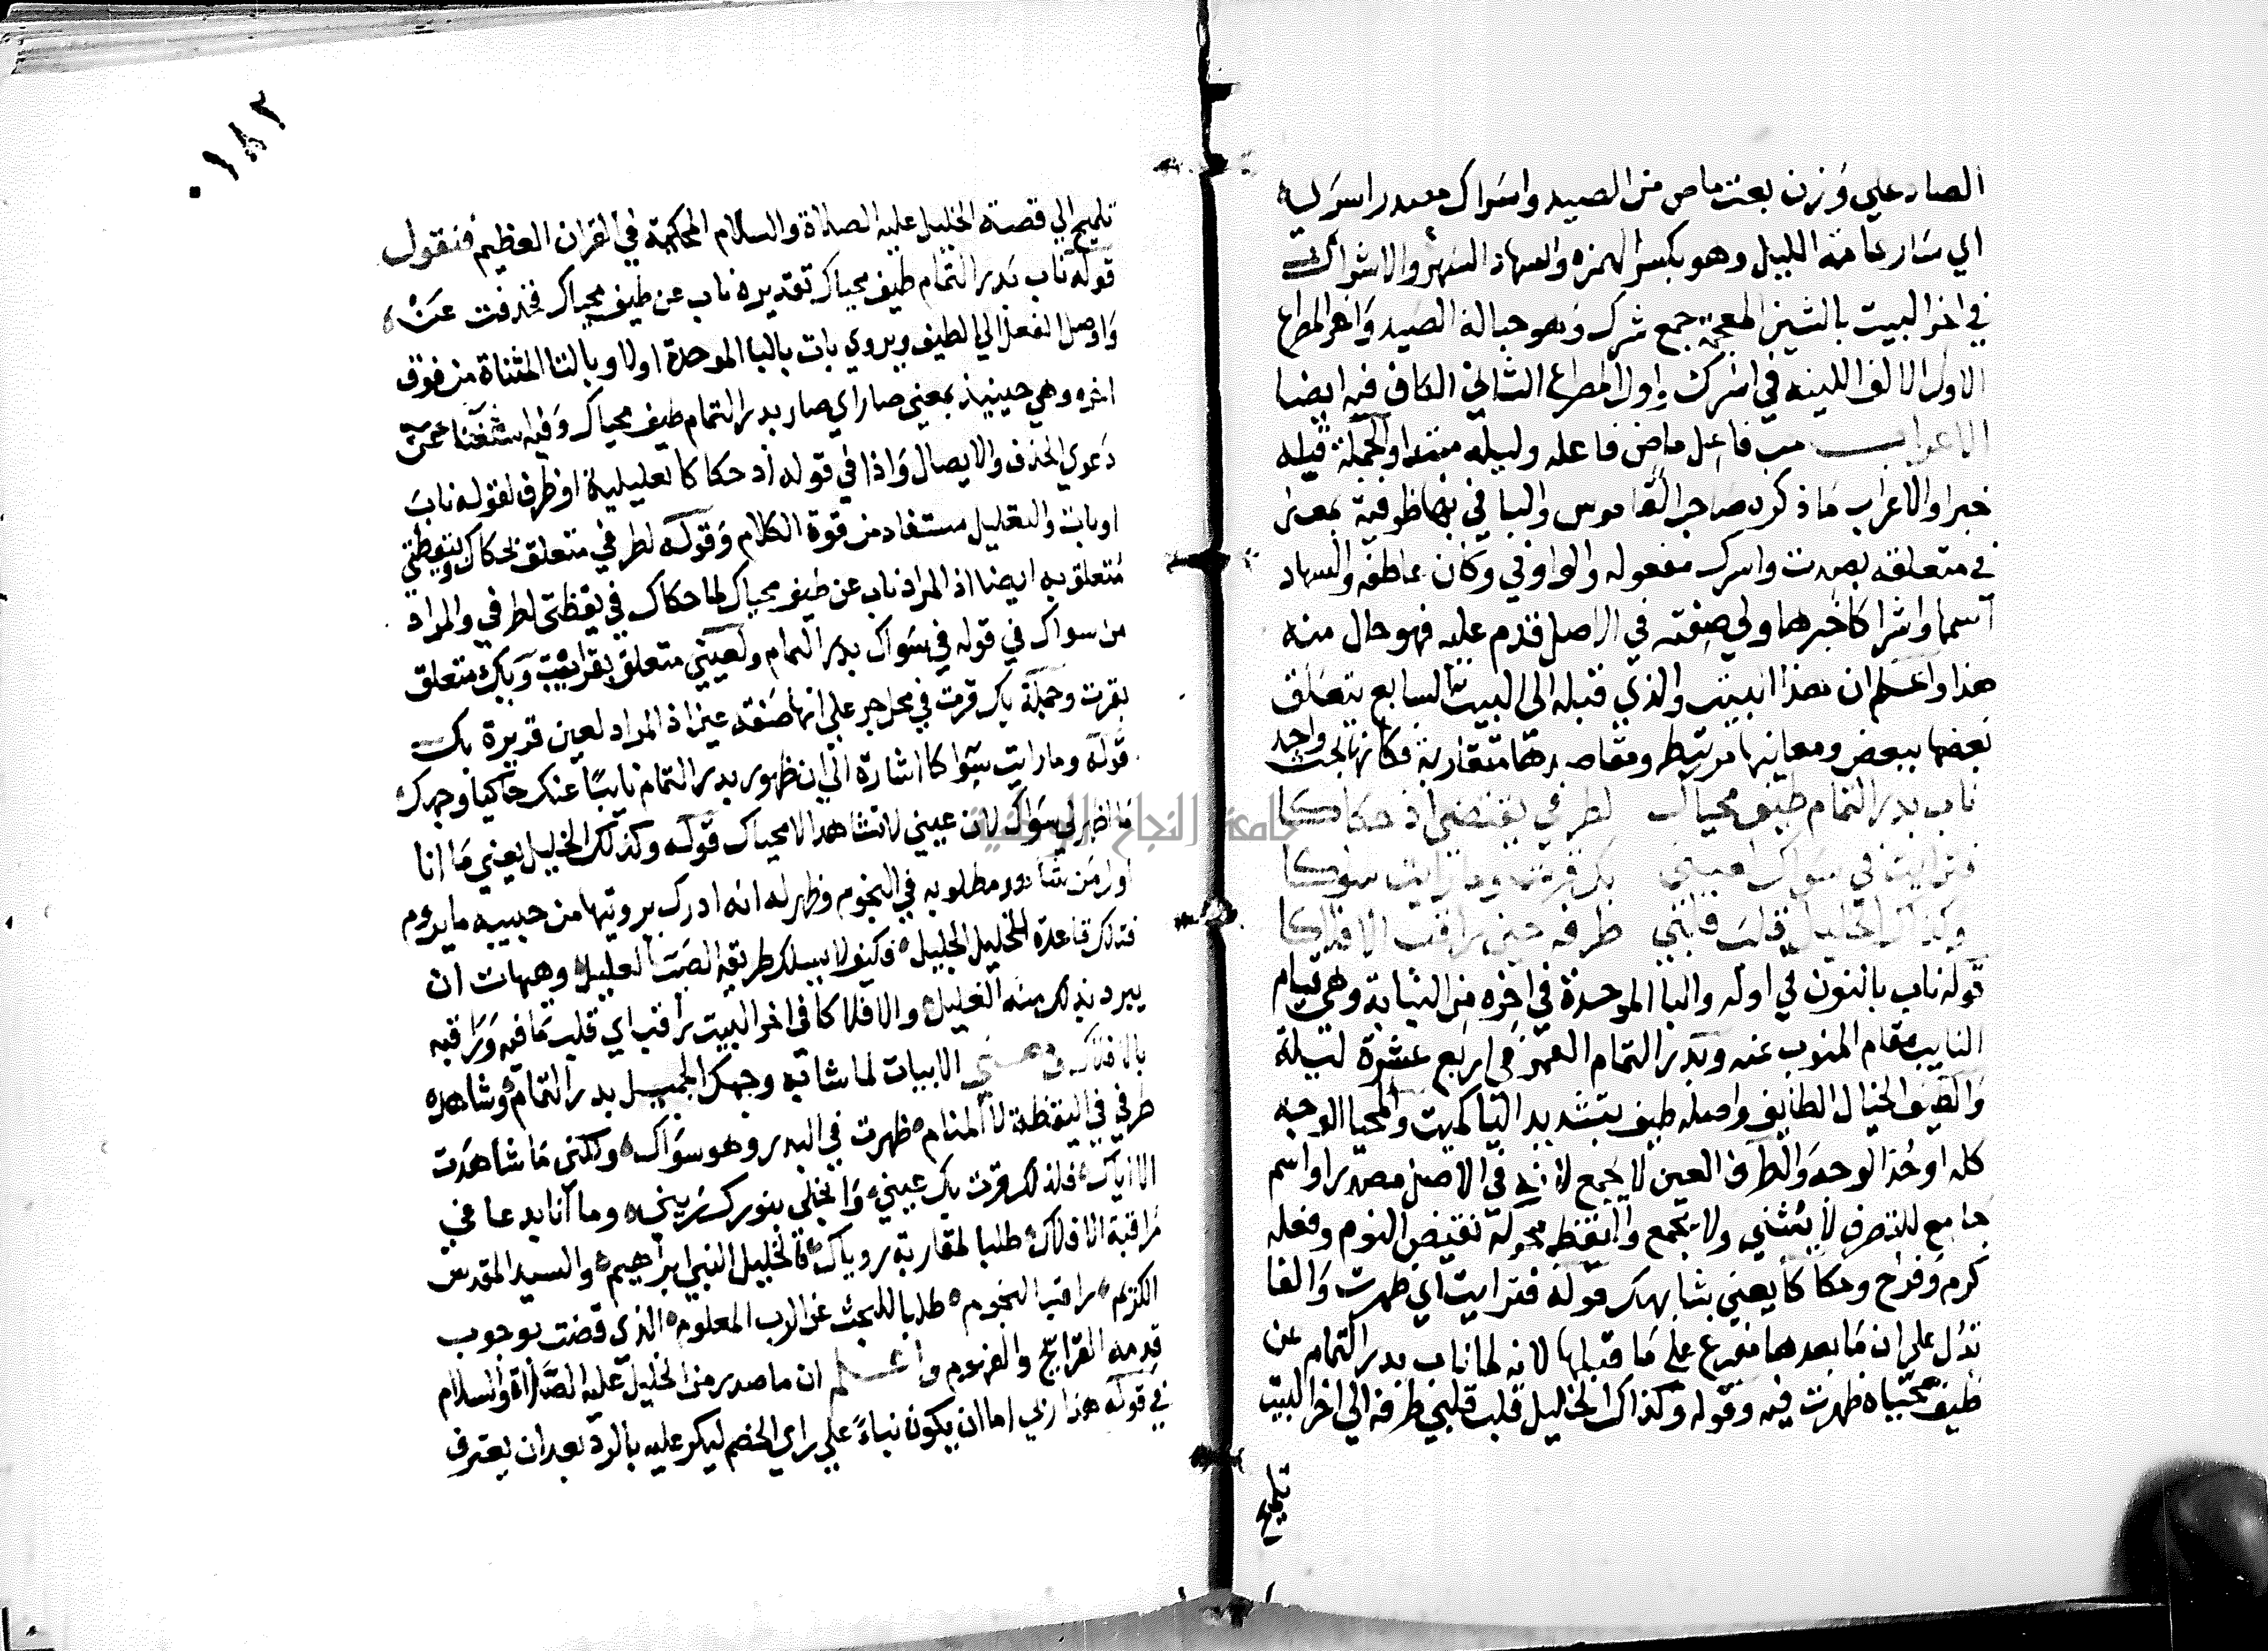 الصاد علي وزن بعت ماض من الصيد واسراك مصدر اسري
اي سار عامة الليل وهو بكسر الهمزة والسهاد السهر والاشراك
في اخر البيت بالشين المعجمة جمع شرك وهو حبالة الصيد واخر المصراع
الاول الالف اللينه في اشرك واول المصراع الثاني الكاف فيه ايضا
الاعراب فاعل ماض فاعله وليله مبتدا والجملة قبله
خبر والاعراب ما ذكره صاحب القاموس والبا في بها ظرفية بمعني
في متعلقه بصدت واسرك مفعوله والواو في وكان عاطفه والسهاد
اسمها واشراكا خبرها ولي صفته في الاصل قدم عليه فهو حال منه
هذا واعلم ان هذا البيت والذي قبله الى البيت السابع يتعلق
بعضها ببعض ومعانيها مرتبطة ومقاصدها متقاربة فكانها بحث واحد
ناب بدر التمام طيف محياك لطرفي بيقظتي اذ حكاكا
فترايت في سواك لعيني بك قرت وما رايت سواكا
وكذاك الخليل قلب قبلي طرفه حين راقب الافلاكا
قوله ناب بالنون في اوله والبا الموحدة في اخره من النيابة وهي قيام
النايب مقام المنوب عنه وبدر التمام القمر في اربع عشرة ليلة
والطيف الخيال الطايف واصله طيف بتشديد اليا كميت والمحيا الوجه
كله او حر الوجه والطرف العين لا يجمع لانه في الاصل مصدر او اسم
جامع للتصرف لا يثني ولا يجمع واليقظة محركة نقيض النوم وفعله
كرم وفرح وحكاكا يعني شابهك قوله فترايت اي ظهرت والفا
تدل على ان ما بعدها مفرع على ما قبلها لانه لما ناب بدر التمام عن
طيف محياه ظهرت فيه وقوله وكذاك الخليل قلب قبلي طرفه الي اخر البيت
تلميح
٠١٨٢
تلميح الي قصة الخليل عليه الصلاة والسلام المحكية في القران العظيم فنقول
قوله ناب بدر التمام طيف محياك تقديره ناب عن طيف محياك فحذفت عن
واوصل الفعل الي الطيف ويروي بات بالبا الموحدة اولا وبالتا المثناة من فوق
اخره وهي حينيذ بمعني صار اي صار بدر التمام طيف محياك وفيه استغنا عن
دعوي الحذف والايصال واذا في قوله اذ حكاكا تعليلية او ظرف لقوله ناب
او بات والتعليل مستفاد من قوة الكلام وقوله لطرفي متعلق بحكاك وبيقظتي
متعلق به ايضا اذ المراد ناب عن طيف محياك لما حكاك في يقظتي لطرفي والمراد
من سواك في قوله في سواك بدر التمام ولعيني متعلق بترايت وبك متعلق
بقرت وجملة بك قرت في محل جر على انها صفة عين اذ المراد لعين قريرة بك
قوله وما رايت سواكا اشارة الي ان ظهور بدر التمام نايبا عنك حاكيا وجهك
ما اظهر لي سواك لان عيني لا تشاهد الا محياك قوله وكذلك الخليل يعني ما انا
اول من شاهد مطلوبه في النجوم وظهر له انه ادرك برويتها من حبيبه ما يروم
فتلك قاعدة للخليل الجليل فكيف لا يسلك طريقه الصب العليل وهيهات ان
يبرد بذلك منه الغليل والافلاكا في اخر البيت راقب اي قلب
بالافلاك ومعني الابيات لما شابه وجهك الجميل بدر التمام وشاهده
طرفي في اليقظة لا المنام ظهرت في البدر وهو سواك ولكني ما شاهدت
الا اياك فلذلك قرت بك عيني وانجلى بنورك ريني وما انا بدعا في
مراقبة الافلاك طلبا لمقاربة روياك فالخليل النبي ابراهيم والسيد المقدس
الكريم راقب النجوم طلبا للبحث عن الرب المعلوم الذي قضت بوجوب
قدمه القرايح والفهوم واعلم ان ما صدر من الخليل عليه الصلاة والسلام
في قوله هذا ربي اما ان يكون بناء علي راي الخصم ليكر عليه بالرد بعد ان يعترف